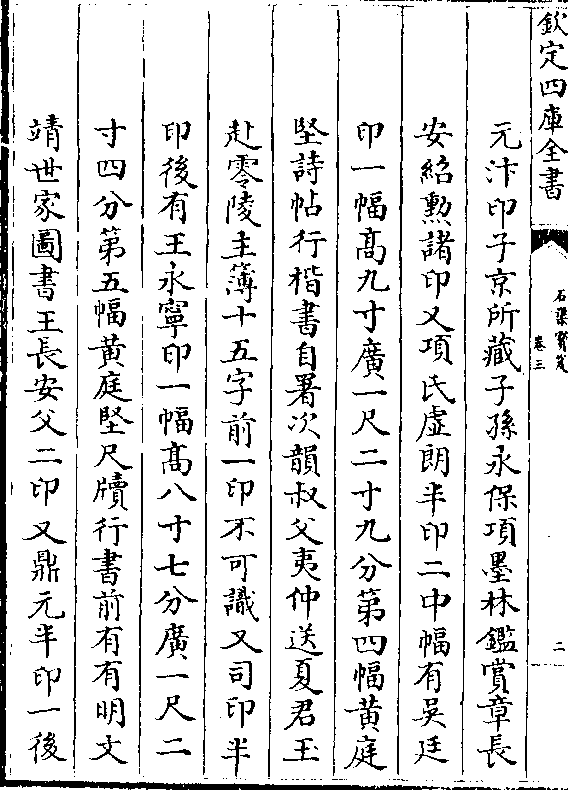 欽定四庫全書
石渠寳笈
卷三
二
元汴印子京所藏子孫永保項墨林鑑賞章長
安紹勲諸印又項氏虛朗半印二中幅有吳廷
印一幅髙九寸廣一尺二寸九分第四幅黄庭
堅詩帖行楷書自署次韻叔父夷仲送夏君玉
赴零陵主簿十五字前一印不可識又司印半
印後有王永寧印一幅髙八寸七分廣一尺二
寸四分第五幅黄庭堅尺牘行書前有有明文
靖世家圖書王長安父二印又鼎元半印一後